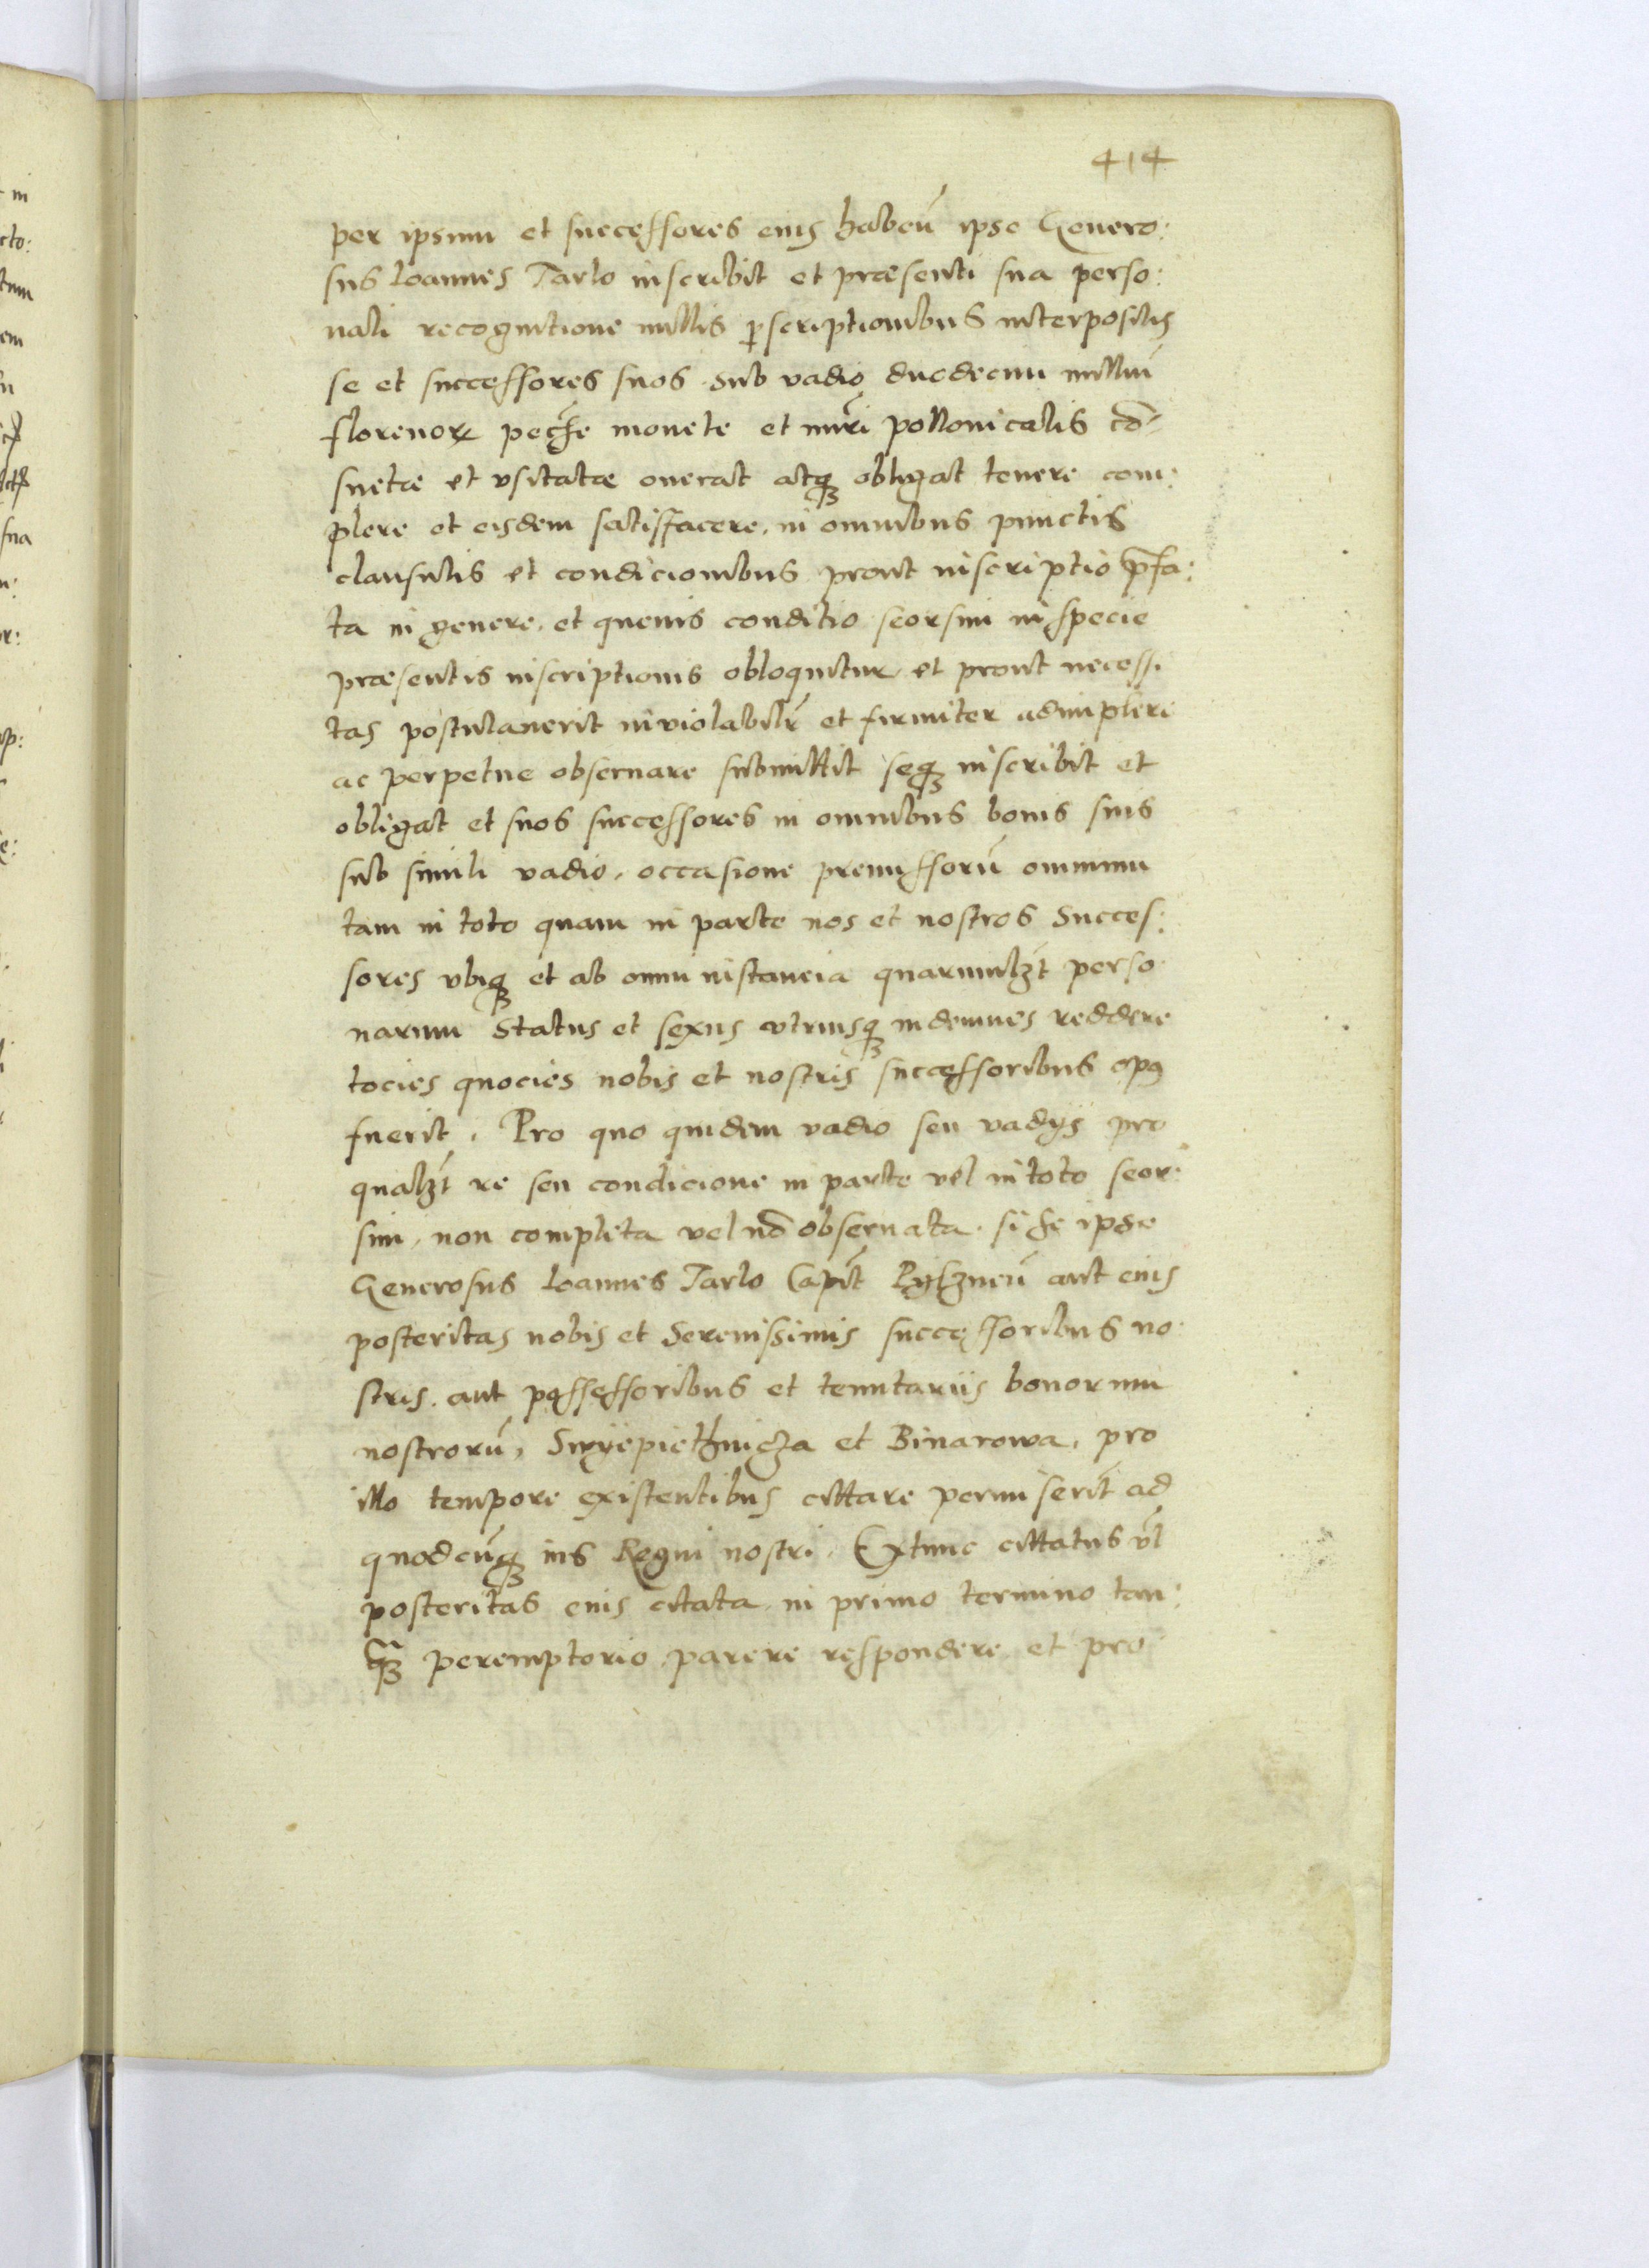 414
per ipsum et successores eius habeñ ipse Genero:
sus Ioannes Tarlo inscribit et præsenti sua perso:
nali recognitione nullis p̱scriptionibus interpositis
se et successores suos sub vadio duodecim milliũ
florenoꝝ pecũe monete et nũri pollonicalis cō-
suetæ et vsitatæ onerat atqꝫ obligat tenere com:
plere et eisdem satisfacere, in omnibus punctis
clausulis et condicionibus prout inscriptio p̄fa:
ta in genere, et queuis conditio seorsim in specie
præsentis inscriptionis obloquitur et prout necessi
tas postulauerit inviolabilr̃ et firmiter adimplere
ac perpetue obseruare submittit seqꝫ inscribit et
obligat et suos successores in omnibus bonis suis
sub simili vadio, occasione premissorũ omnium
tam in toto quam in parte nos et nostros Succes:
sores vbiqꝫ et ab omni instancia quarumlꝫt perso
narum Status et sexus vtriusqꝫ indemnes reddere
tocies quocies nobis et nostris successoribus opꝰ
fuerit, Pro quo quidem vadio seu vadijs pro
qualꝫt re seu condicione in parte vel in toto seor:
sim, non completa vel nō obseruata. si se ipse
Generosus Ioannes Tarlo Capit̃ Pylzneñ aut eius
posteritas nobis et Serenissimis successoribus no:
stris. aut possessoribus et tenutariis bonorum
nostrorũ, Swyëpiethnicza et Binarowa, pro
illo tempore existentibus cittare permiserit ad
quodcũqꝫ ius Regni nostri, Extunc cittatus vl̃
posteritas eius citata in primo termino tan:
q̃ꝫ peremptorio parere respondere et pro